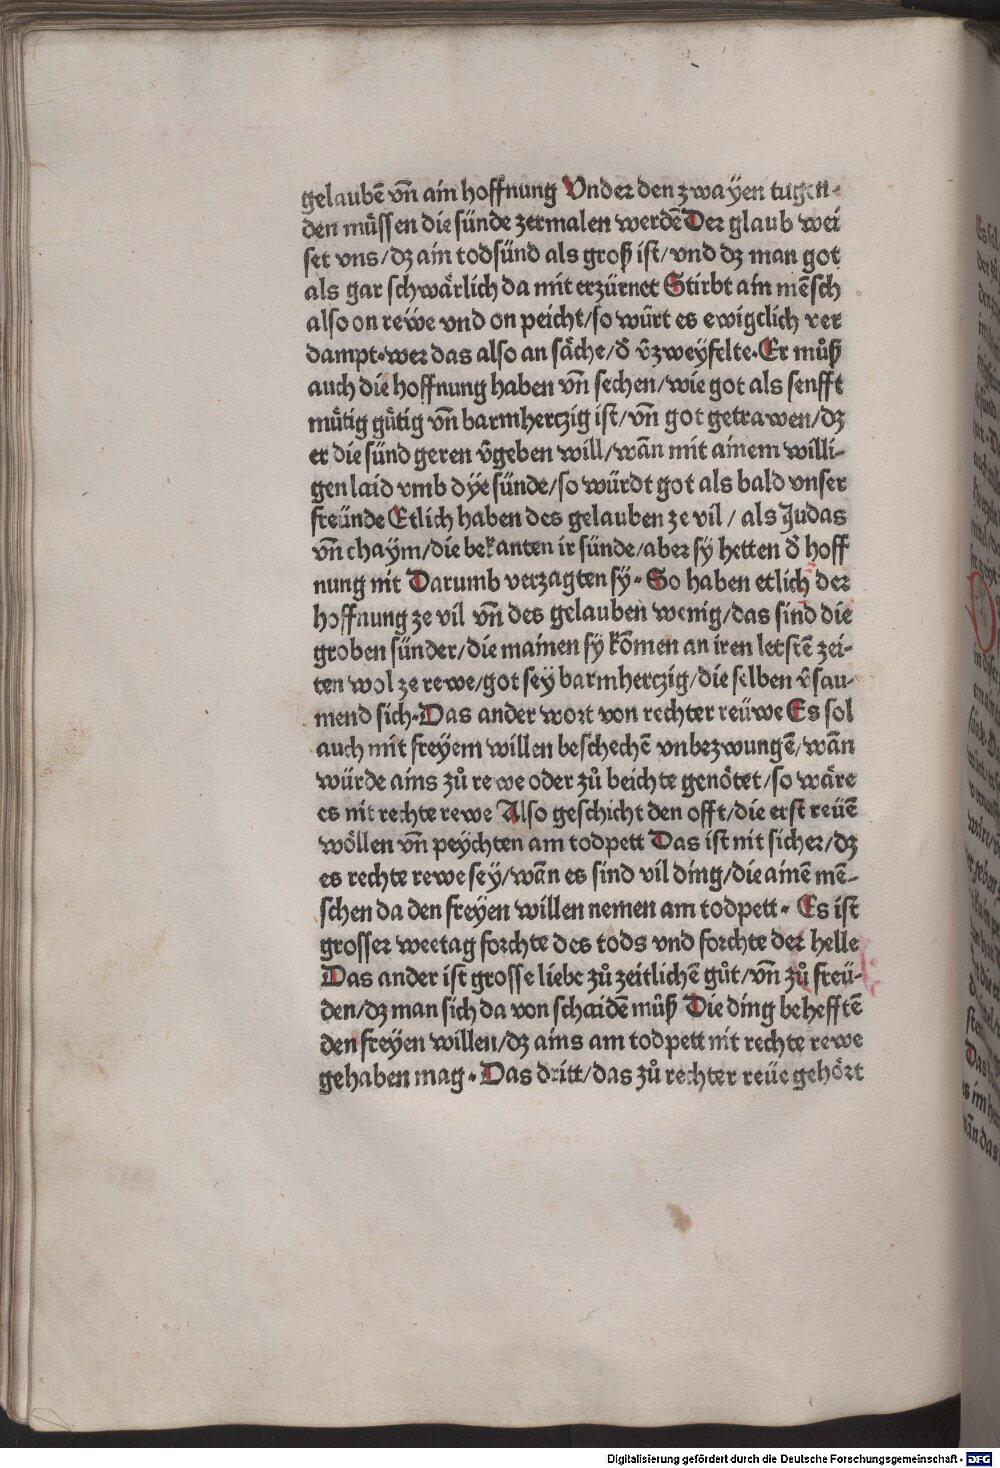 gelaubē vn̄ ain hoffnung Vnder den zwaÿen tugen-
den müssen die sünde zermalen werdē Der glaub wei
set vns/dz ain todsünd als groß ist/vnd dz man got
als gar schwärlich da mit erzürnet Stirbt ain mēsch
also on reẅe vnd on peicht/so würt es ewigclich ver
dampt·wer das also an säche/d̄ v̄zweÿfelte·Er můß
auch die hoffnung haben vn̄ sechen/wie got als senfft
můtig gůtig vn̄ barmhertzig ist/vn̄ got getrawen/dz
er die sünd geren v̄geben will/wān mit ainem willi-
gen laid vmb dÿe sünde/so würdt got als bald vnser
freünde Etlich haben des gelauben ze vil / als Judas
vn̄ chaym/die bekanten ir sünde/aber sÿ hetten d̄ hoff
nung nit Darumb verzagten sÿ· So haben etlich der
hoffnung ze vil vn̄ des gelauben wenig/das sind die
groben sünder/die mainen sÿ kōmen an iren letstē zei-
ten wol ze rewe/got seÿ barmhertzig/die selben v̄sau-
mend sich·Das ander wort von rechter reüwe Es sol
auch mit freÿem willen beschechē vnbezwungē/wān
würde ains zů rewe oder zů beichte genötet/so wäre
es nit rechte rewe Also geschicht den offt/die erst reüē
wöllen vn̄ peÿchten am todpett Das ist nit sicher/dz
es rechte rewe seÿ/wān es sind vil ding/die ainē mē-
schen da den freÿen willen nemen am todpett· Es ist
grosser weetag forchte des tods vnd forchte der helle
Das ander ist grosse liebe zů zeitlichē gůt/vn̄ zů freü-
den/dz man sich da von schaidē můß Die ding behefftē
den freÿen willen/dz ains am todpett nit rechte rewe
gehaben mag · Das dritt/das zů rechter reüe gehört
Digitalisierung gefördert durch die Deutsche Forschungsgemeinschaft - DFG